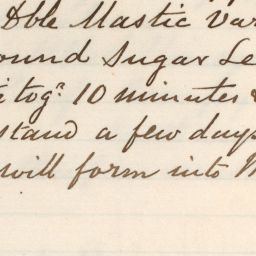 Dble Mastic Var
ound Sugar Le
tog.r 10 minutes &
stand a few days
will form into